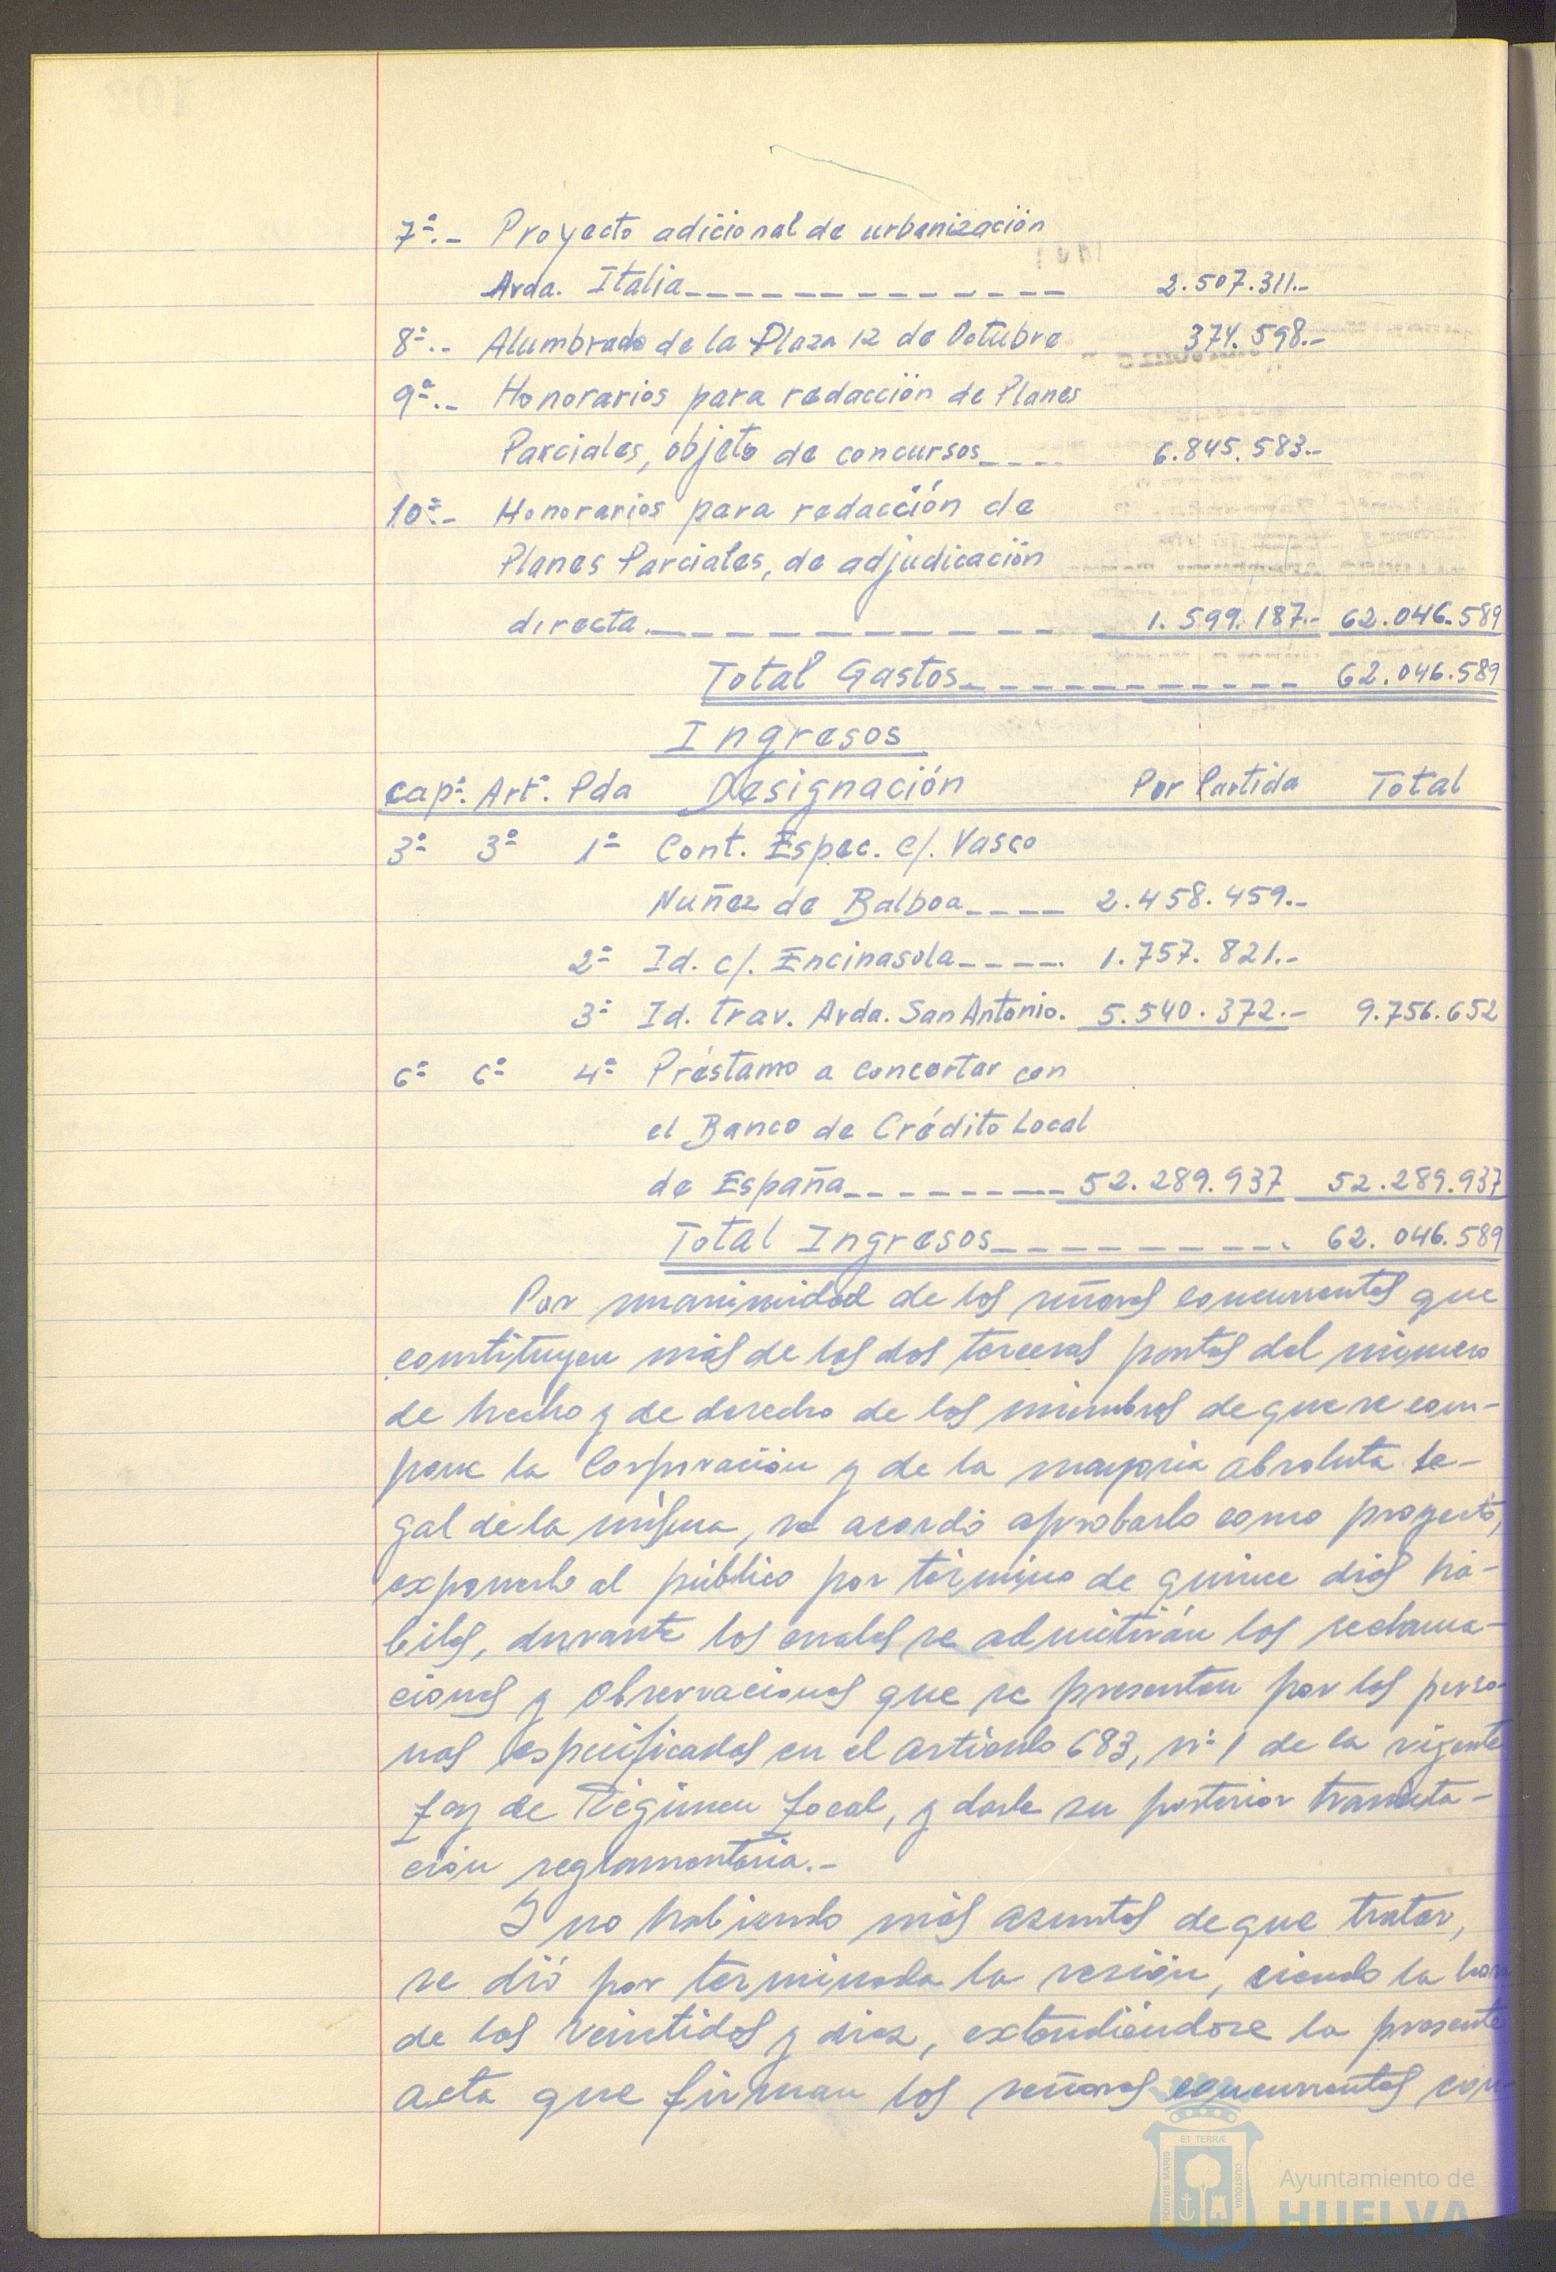 7ª.- Proyecto adicional de urbanización
Avda. Italia 2.507.311.-
8ª.- Alumbrado de la Plaza 12 de Octubre 374.598.-
9ª.- Honorarios para redacción de Planes
Parciales, objeto de concursos 6.845.583.-
10ª.- Honorarios para redacción de
Planes Parciales, de adjudicación
directa. 1.599.187.- 62.046.589
Total Gastos 62.046.589
Ingresos
Capº. Artº. Pda Designación Por Partida Total
3º 3º 1ª Cont. Espec. c/. Vasco
Nuñez de Balboa 2.458.459.-
2ª Id. c/. Encinasola 1.757.821.-
3ª Id. trav. Avda. San Antonio. 5.540.372.- 9.756.652
6º 6º 4ª Préstamo a concertar con
el Banco de Crédito Local
de España 52.289.937 52.289.937
Total Ingresos 62.046.589
Por unanimidad de los señores concurrentes que
constituyen más de las dos terceras partes del número
de hecho y de derecho de los miembros de que se com-
pone la Corporación y de la mayoría absoluta le-
gal de la misma, se acordó aprobarlo como proyecto,
exponerlo al público por término de quince días há-
biles, durante los cuales se admitirán las reclama-
ciones y observaciones que se presenten por las perso-
nas especificadas en el artículo 683, nº 1 de la vigente
Ley de Régimen Local, y darle su posterior tramita-
ción reglamentaria.-
Y no habiendo más asuntos de que tratar,
se dió por terminada la sesión, siendo la hora
de las veintidos y diez, extendiéndose la presente
acta que firman los señores concurrentes con-
ET TERRÆ
PORTUS MARIS
CUSTODIA
Ayuntamiento de
HUELVA